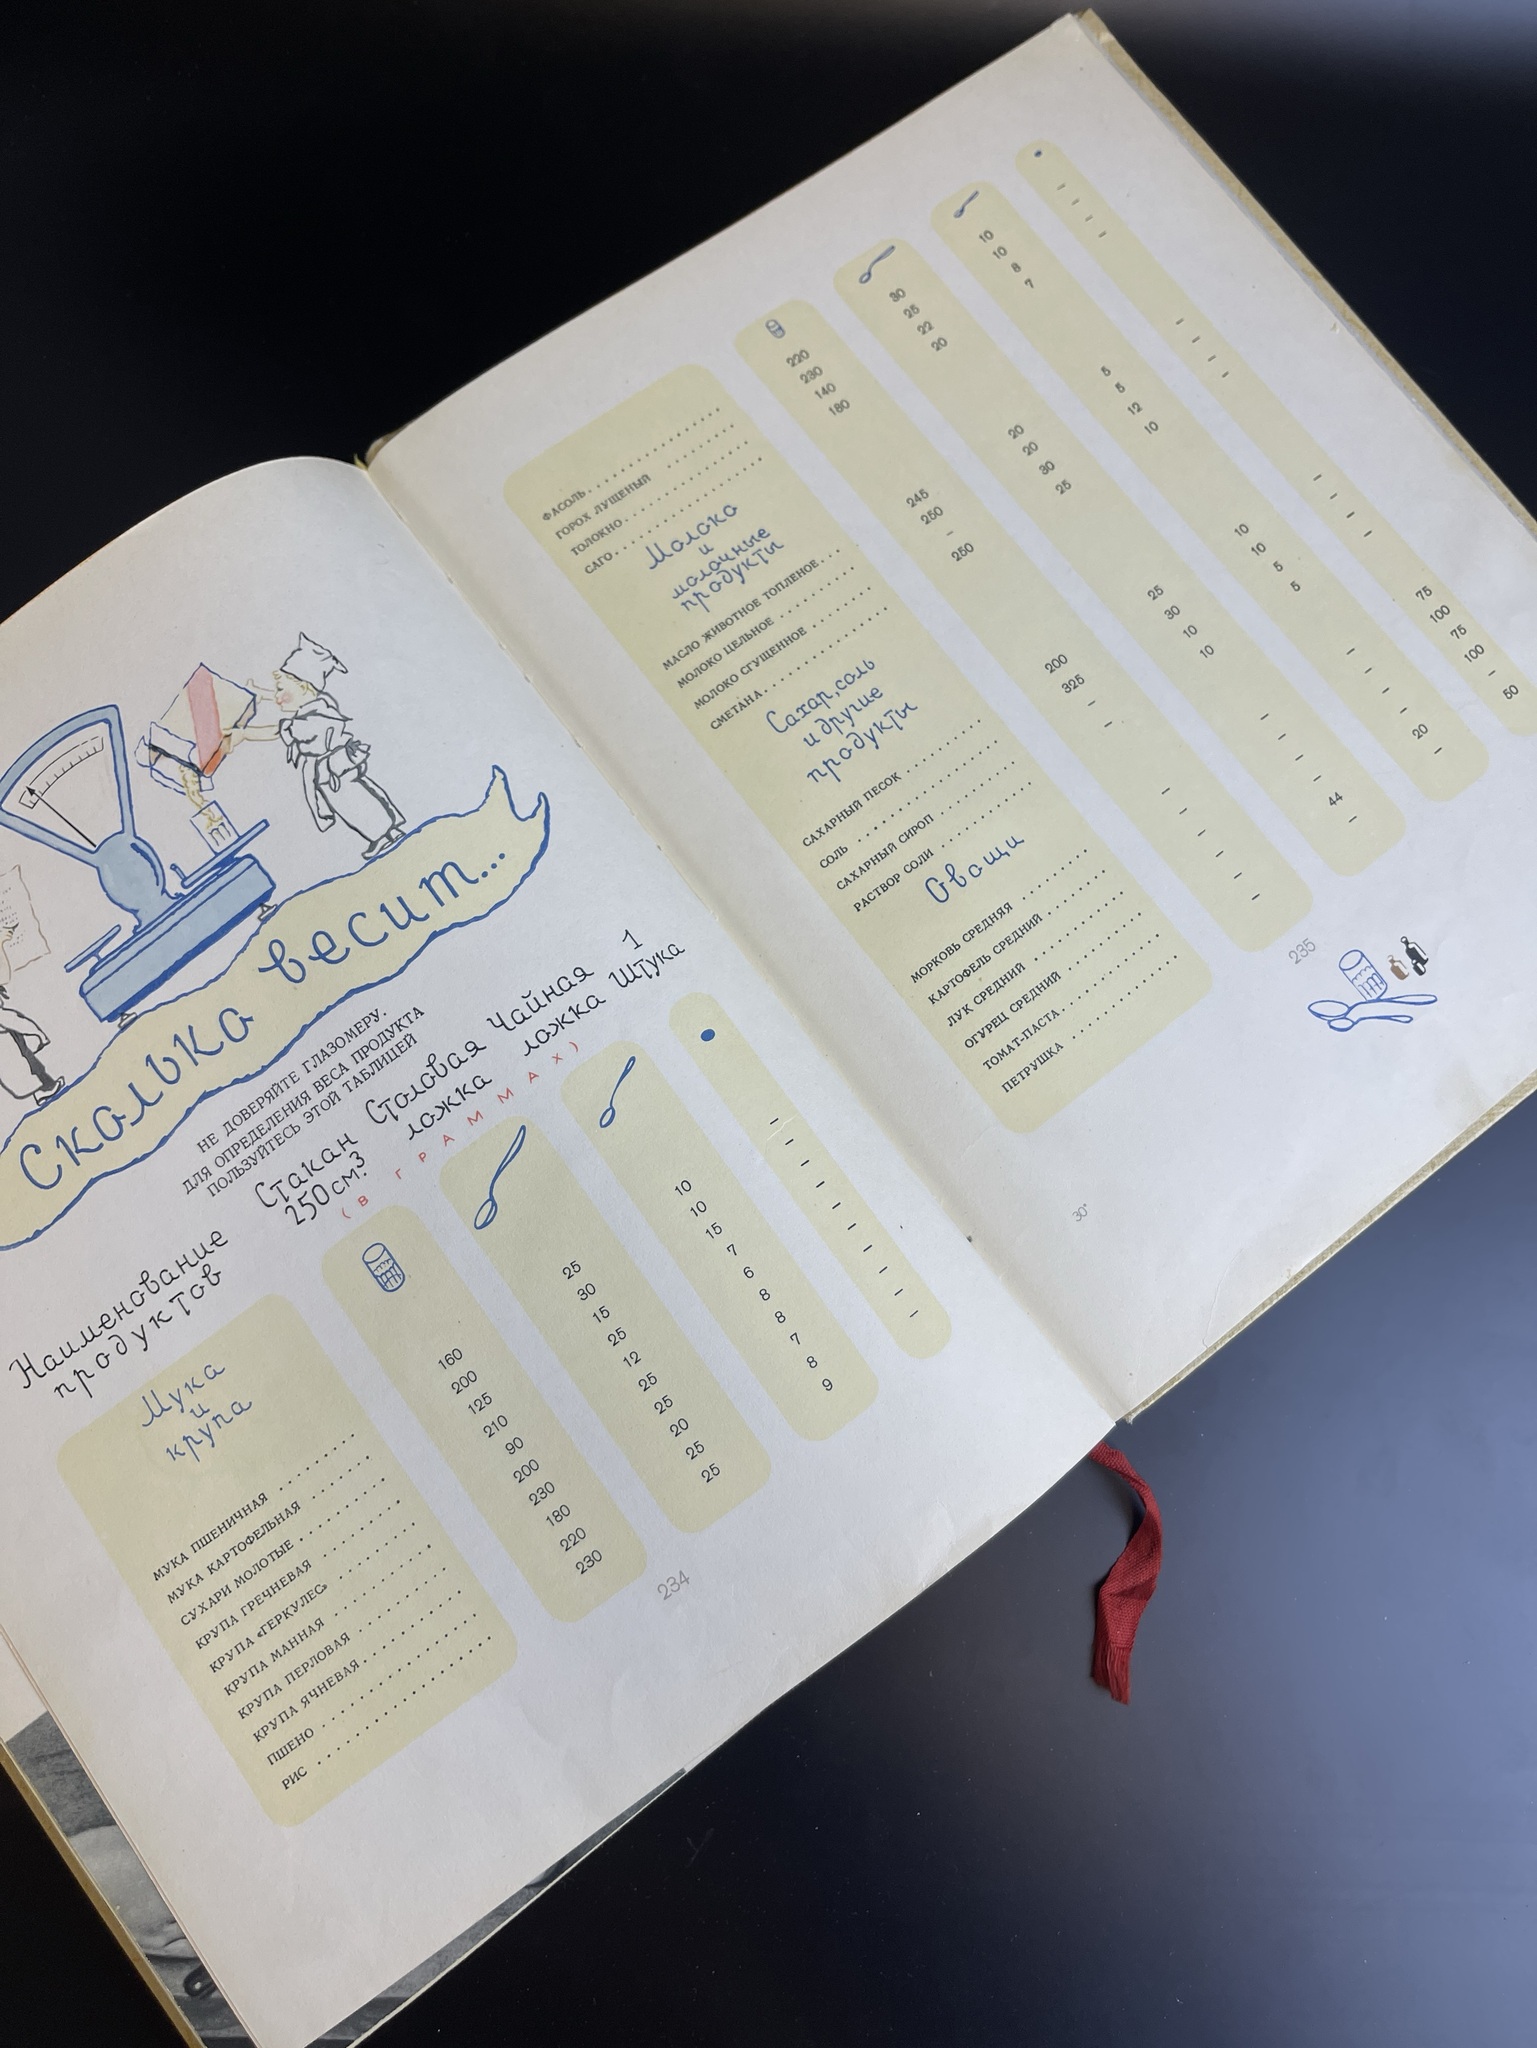 Сколько весит...
НЕ ДОВЕРЯЙТЕ ГЛАЗОМЕРУ.
ДЛЯ ОПРЕДЕЛЕНИЯ ВЕСА ПРОДУКТА
ПОЛЬЗУЙТЕСЬ ЭТОЙ ТАБЛИЦЕЙ
Наименование продуктов
Стакан 250 см.³
Столовая ложка
Чайная ложка
1 штука
(В ГРАММАХ)
Мука
и
крупа
МУКА ПШЕНИЧНАЯ ......... 160 25 10 –
МУКА КАРТОФЕЛЬНАЯ ...... 200 30 10 –
СУХАРИ МОЛОТЫЕ ......... 125 15 15 –
КРУПА ГРЕЧНЕВАЯ ........ 210 25 7 –
КРУПА «ГЕРКУЛЕС» ....... 90 12 6 –
КРУПА МАННАЯ ........... 200 25 8 –
КРУПА ПЕРЛОВАЯ ......... 230 25 8 –
КРУПА ЯЧНЕВАЯ .......... 180 20 7 –
ПШЕНО .................. 220 25 8 –
РИС .................... 230 25 9 –
234
ФАСОЛЬ ................. 220 30 10 –
ГОРОХ ЛУЩЕНЫЙ .......... 230 25 10 –
ТОЛОКНО ................ 140 22 8 –
САГО ................... 180 20 7 –
Молоко
и
молочные
продукты
МАСЛО ЖИВОТНОЕ ТОПЛЕНОЕ ... 245 20 5 –
МОЛОКО ЦЕЛЬНОЕ ......... 250 20 5 –
МОЛОКО СГУЩЕННОЕ ....... – 30 12 –
СМЕТАНА ................ 250 25 10 –
Сахар, соль
и другие
продукты
САХАРНЫЙ ПЕСОК ......... 200 25 10 –
СОЛЬ ................... 325 30 10 –
САХАРНЫЙ СИРОП ......... – 10 5 –
РАСТВОР СОЛИ ........... – 10 5 –
Овощи
МОРКОВЬ СРЕДНЯЯ ........ – – – 75
КАРТОФЕЛЬ СРЕДНИЙ ...... – – – 100
ЛУК СРЕДНИЙ ............ – – – 75
ОГУРЕЦ СРЕДНИЙ ......... – – – 100
ТОМАТ-ПАСТА ............ – 44 20 –
ПЕТРУШКА ............... – – – 50
235
30*